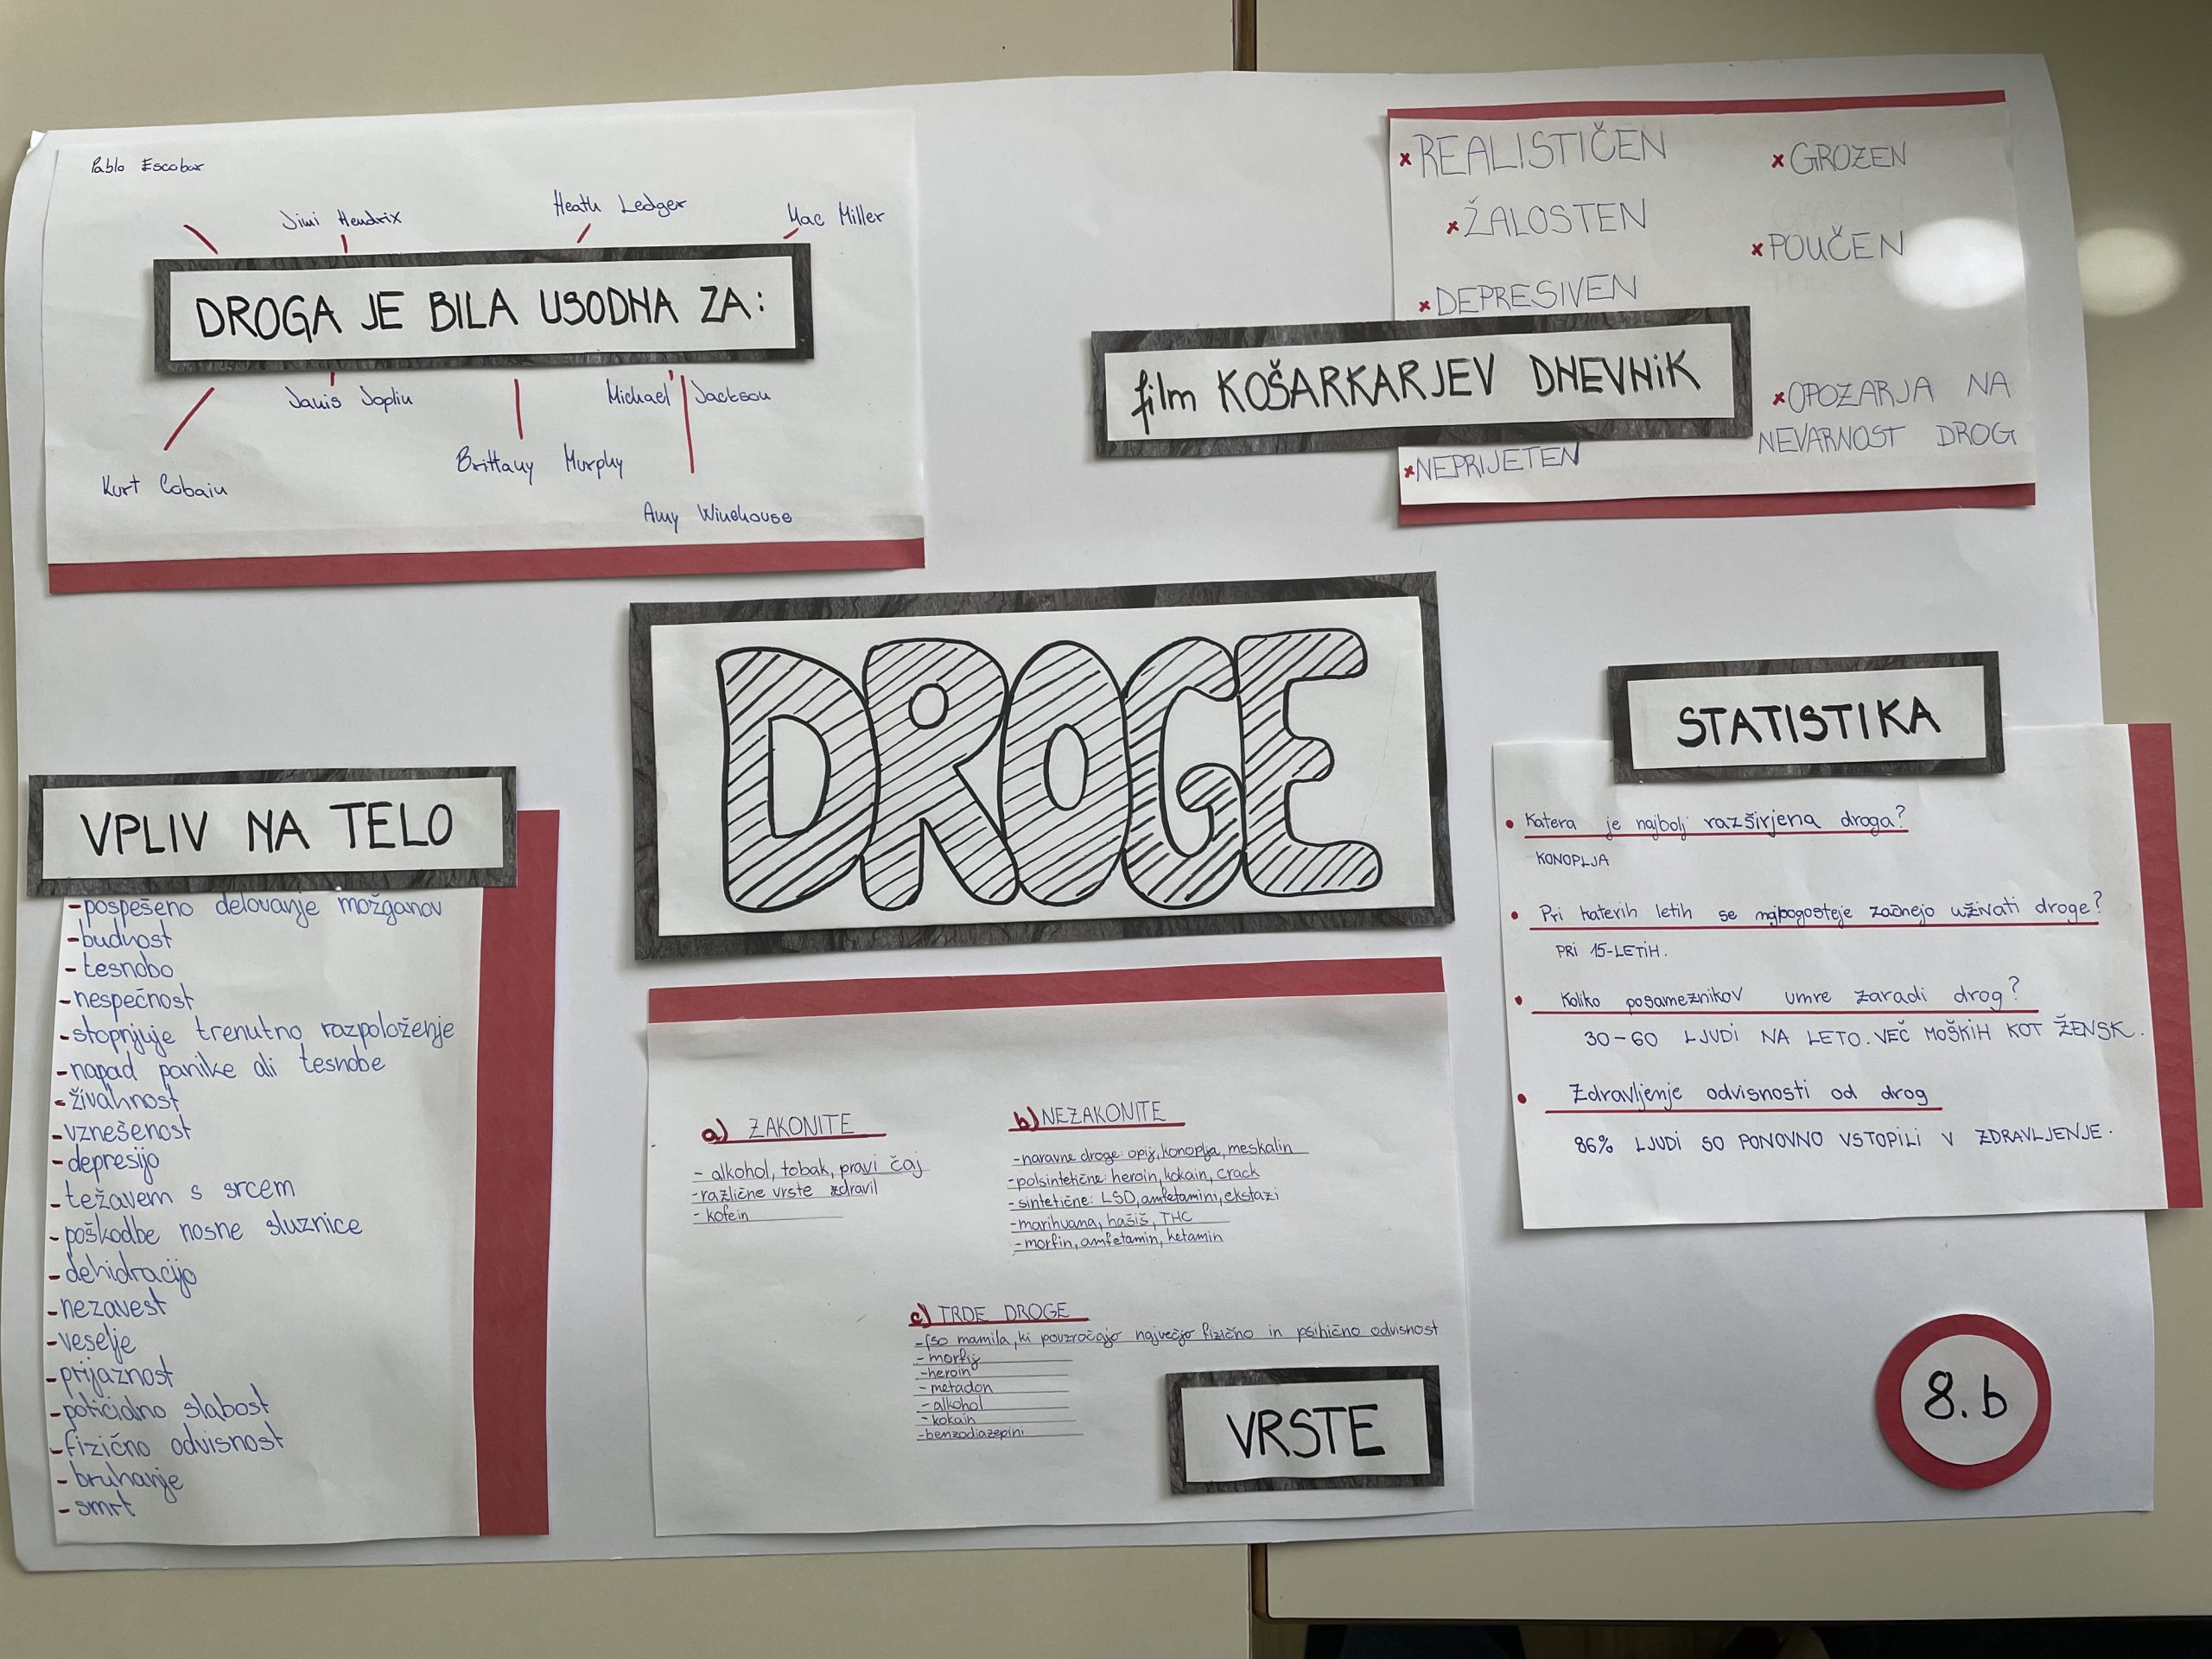 Pablo Escobar
Jimi Hendrix
Heath Ledger
Mac Miller
DROGA JE BILA USODNA ZA:
Janis Joplin
Michael Jackson
Kurt Cobain
Brittany Murphy
Amy Winehouse
REALISTIČEN
GROZEN
ŽALOSTEN
POUČEN
DEPRESIVEN
film KOŠARKARJEV DNEVNiK
OPOZARJA NA
NEVARNOST DROG
NEPRIJETEN
DROGE
VPLIV NA TELO
-pospešeno delovanje možganov
-budnost
-tesnobo
-nespečnost
-stopnjuje trenutno razpoloženje
-napad panike ali tesnobe
-živahnost
-vznešenost
-depresijo
-težavem s srcem
-poškodbe nosne sluznice
-dehidracijo
-nezavest
-veselje
-prijaznost
-slabost
-fizično odvisnost
-bruhanje
-smrt
a) ZAKONITE
- alkohol, tobak, pravi čaj
-različne vrste zdravil
- kofein
b) NEZAKONITE
-naravne droge: opij, konoplja, meskalin
-polsintetične: heroin, kokain, crack
-sintetične: LSD, amfetamini, ekstazi
-marihuana, hašiš, THC
-morfin, amfetamin, ketamin
c) TRDE DROGE
-(so mamila, ki povzročajo največjo fizično in psihično odvisnost
-morfij
-heroin
-metadon
-alkohol
-kokain
-benzodiazepini
VRSTE
STATISTIKA
• Katera je najbolj razširjena droga?
KONOPLJA
• Pri katerih letih se najpogosteje začnejo uživati droge?
PRI 15-LETiH.
• Koliko posameznikov umre zaradi drog?
30-60 LJUDi NA LETO. VEČ MOŠKIH KOT ŽENSK.
• Zdravljenje odvisnosti od drog
86% LJUDI SO PONOVNO VSTOPILI V ZDRAVLJENJE.
8.b